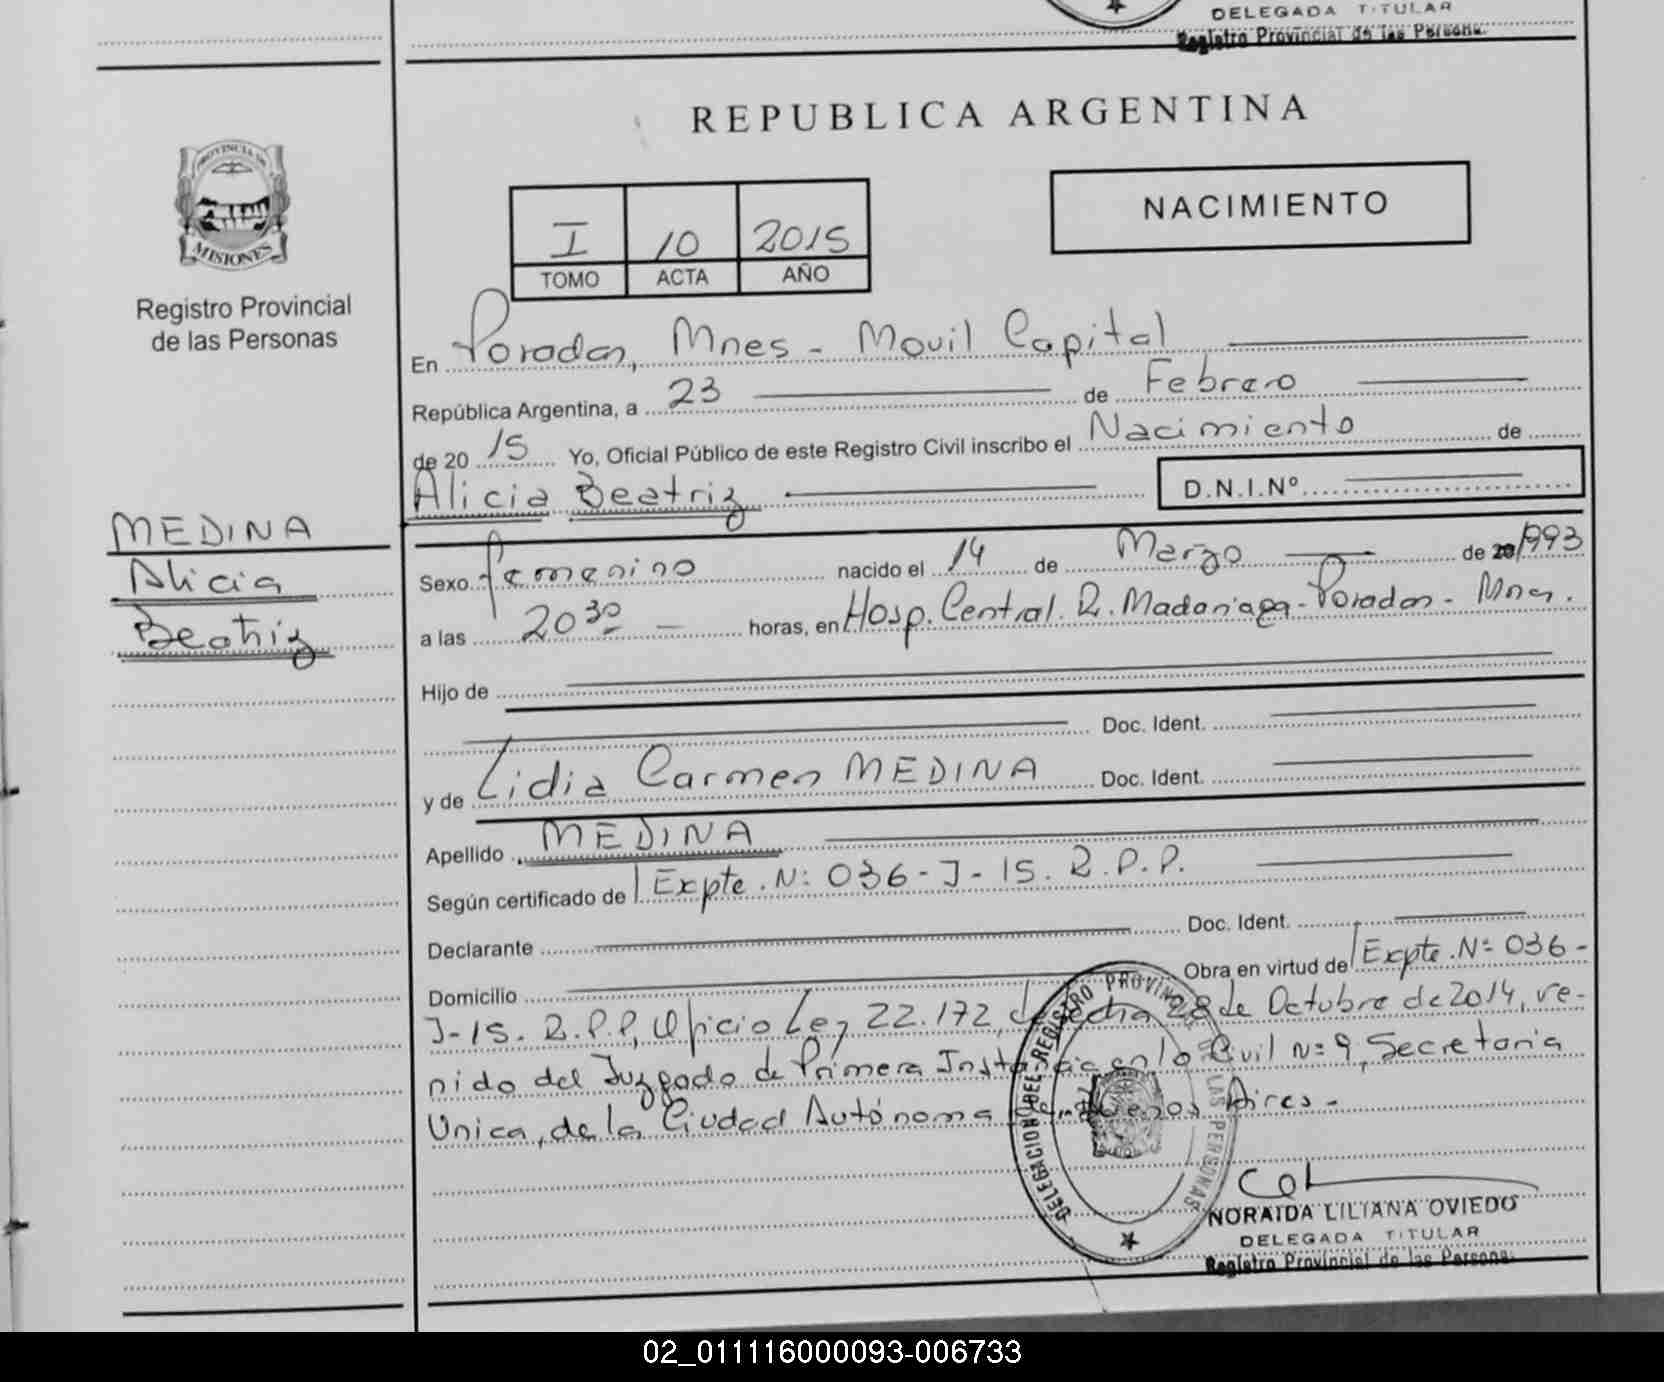 DELEGADA TITULAR
Registro Provincial de las Persona.
REPUBLICA ARGENTINA
PROVINCIA DE
MISIONES
Registro Provincial
de las Personas
I 10 2015
TOMO ACTA AÑO
NACIMIENTO
En Posadas, Mnes - Movil Capital
República Argentina, a 23 de Febrero
de 2015 Yo, Oficial Público de este Registro Civil inscribo el Nacimiento de
Alicia Beatriz D.N.I.Nº
MEDINA
Alicia
Beatriz
Sexo femenino nacido el 14 de Marzo de 20 1993
a las 20 30 horas, en Hosp. Central. R. Madariaga - Posadas - Mnes.
Hijo de
Doc. Ident.
y de Lidia Carmen MEDINA Doc. Ident.
Apellido MEDINA
Según certificado de Expte. Nº: 036-J-15. R.P.P.
Declarante Doc. Ident.
Domicilio Obra en virtud de Expte. Nº 036-
J-15. R.P.P, Oficio Ley 22.172, de fecha 28 de Octubre de 2014, ve-
nido del Juzgado de Primera Instancia en lo Civil Nº 9, Secretaria
Unica, de la Ciudad Autónoma de Buenos Aires.-
DELEGACION DEL REGISTRO PROVINCIAL DE LAS PERSONAS
NORAIDA LILIANA OVIEDO
DELEGADA TITULAR
Registro Provincial de las Persona.
02_011116000093-006733